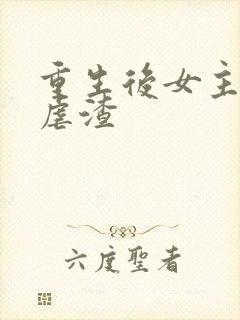 重生後女主
虐渣
六度聖者